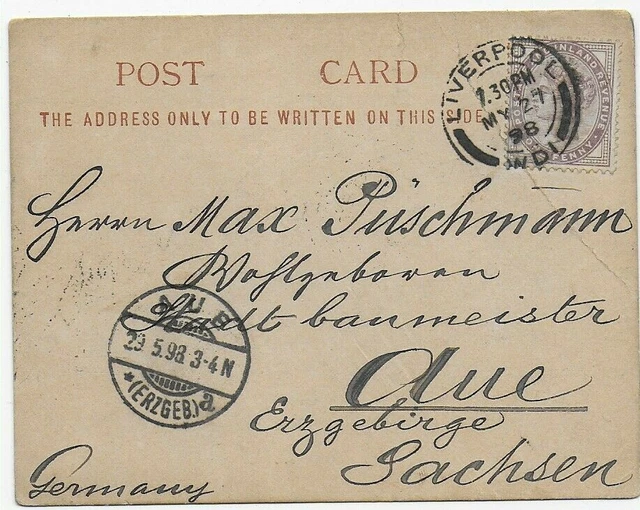 POST CARD
THE ADDRESS ONLY TO BE WRITTEN ON THIS SIDE
LIVERPOOL
7.30PM
MY 27
98
INLAND REVENUE
PENNY
Herrn Max Püschmann
Wohlgeboren
Stadtbaumeister
Aue
Erzgebirge
Sachsen
Germany
AUE
29.5.98 3-4N
*(ERZGEB.)a